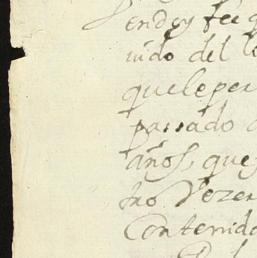 endoy fee q
uido del le
que le per
passado a
años, que
tro Vezer
Contenido